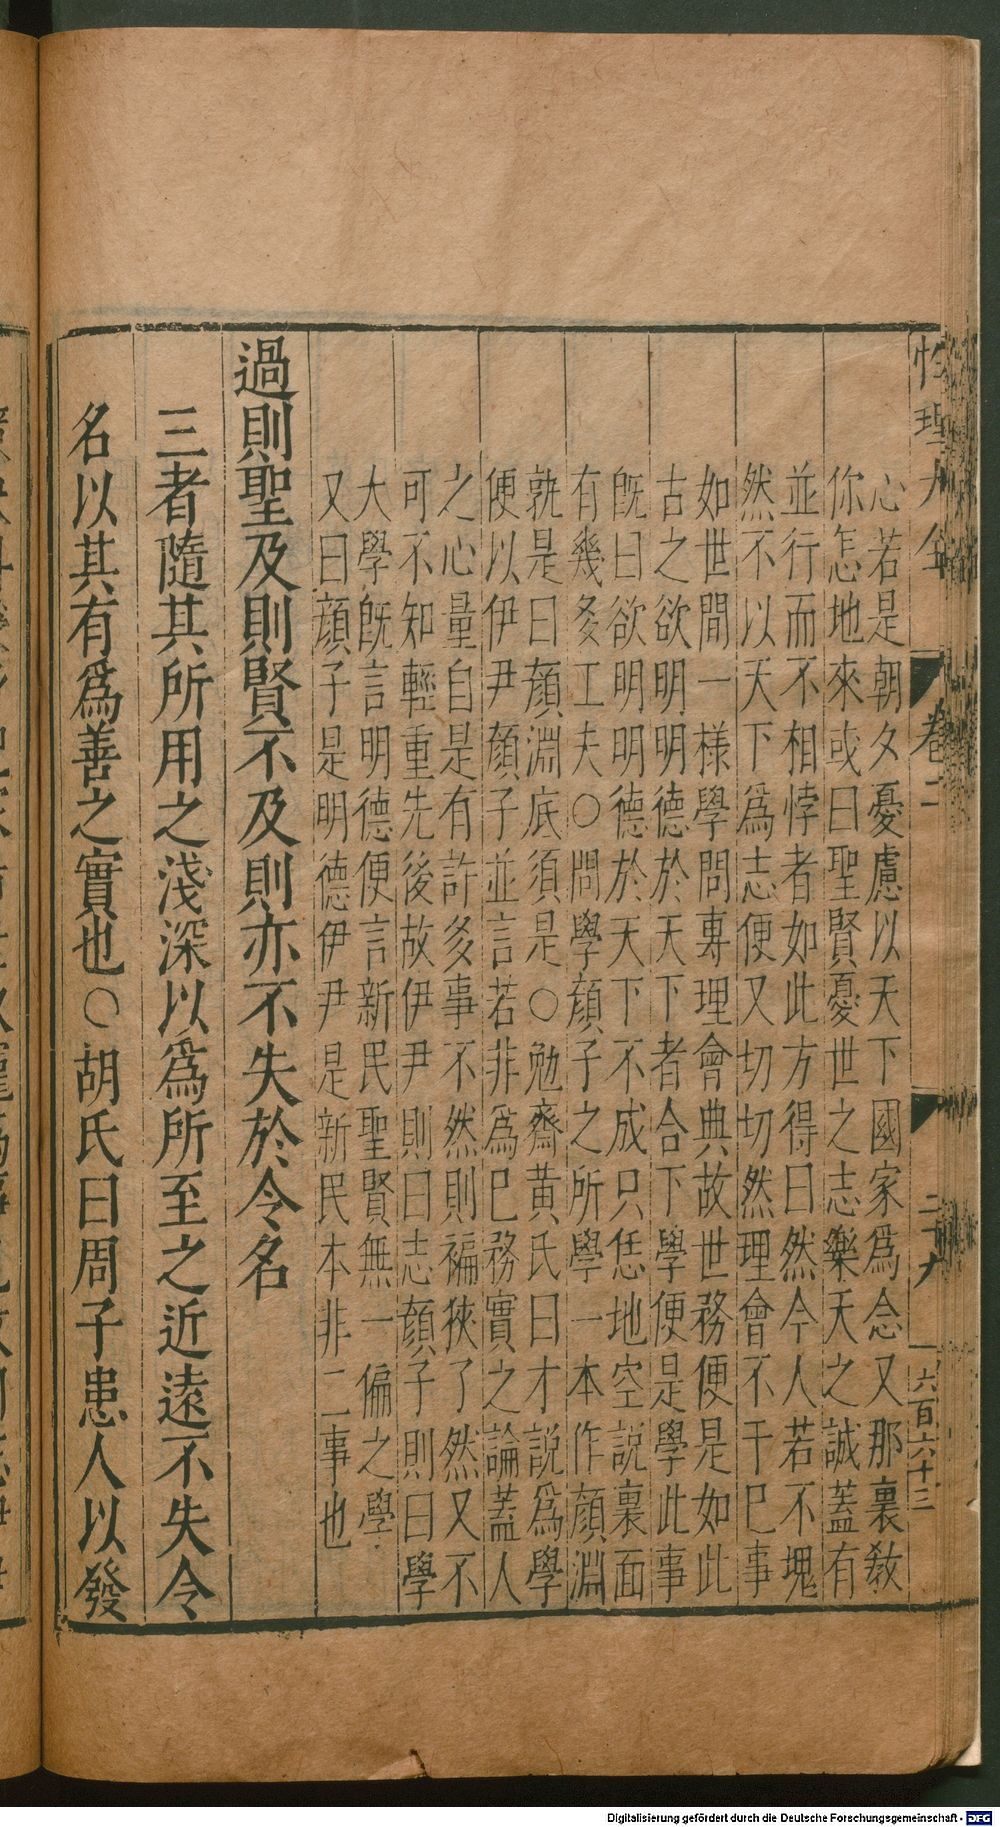 性理大全 卷二 二十八 一六百六十三
心若是朝夕憂慮以天下國家爲念又那裏敎
你怎地來或曰聖賢憂世之志樂天之誠蓋有
並行而不相悖者如此方得曰然今人若不塊
然不以天下爲志便又切切然理會不干已事
如世間一様學問專理會典故世務便是如此
古之欲明明德於天下者合下學便是學此事
旣曰欲明明德於天下不成只恁地空說裏面
有幾多工夫○問學顔子之所學一本作顔淵
孰是曰顔淵底須是○勉齋黄氏曰才說爲學
便以伊尹顔子並言若非爲巳務實之論蓋人
之心量自是有許多事不然則褊狹了然又不
可不知輕重先後故伊尹則曰志顔子則曰學
大學旣言明德便言新民聖賢無一偏之學
又曰顔子是明德伊尹是新民本非二事也
過則聖及則賢不及則亦不失於令名
三者隨其所用之淺深以爲所至之近遠不失令
名以其有爲善之實也○胡氏曰周子患人以發
Digitalisierung gefördert durch die Deutsche Forschungsgemeinschaft - DFG